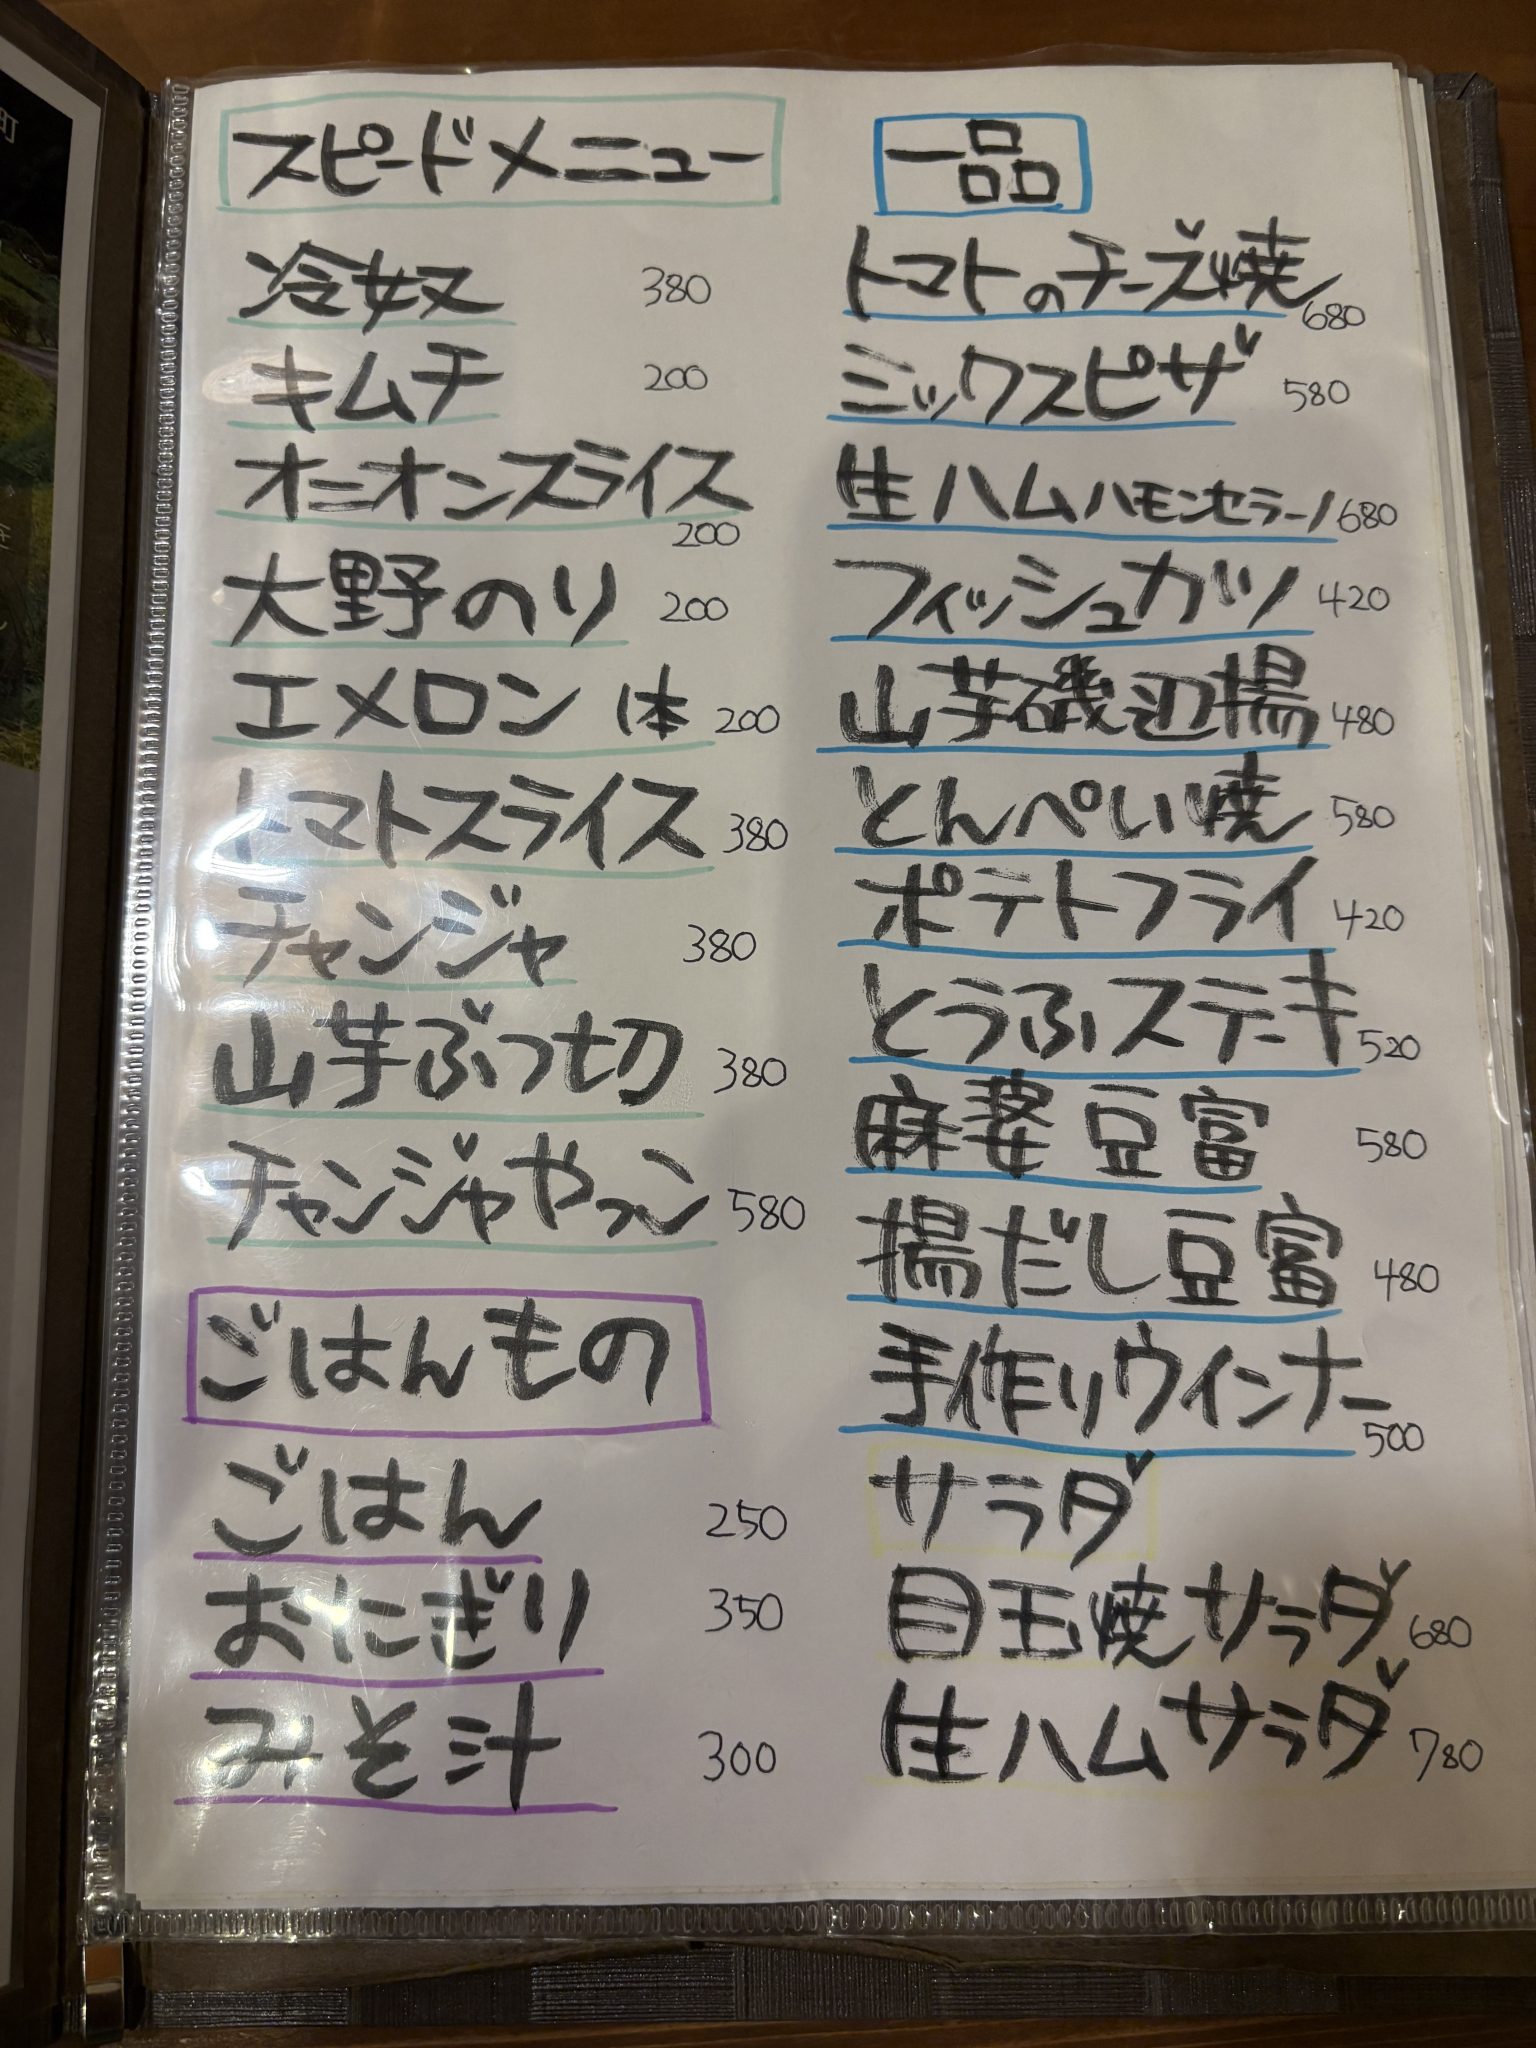 スピードメニュー
冷奴 380
キムチ 200
オニオンスライス 200
大野のり 200
エメロン 1本 200
トマトスライス 380
チャンジャ 380
山芋ぶつ切 380
チャンジャやっコン 580
ごはんもの
ごはん 250
おにぎり 350
みそ汁 300
一品
トマトのチーズ焼 680
ミックスピザ 580
生ハムハモンセラーノ 680
フィッシュカツ 420
山芋磯辺揚 480
とんぺい焼 580
ポテトフライ 420
とうふステーキ 520
麻婆豆富 580
揚だし豆富 480
手作りウインナー 500
サラダ
目玉焼サラダ 680
生ハムサラダ 780